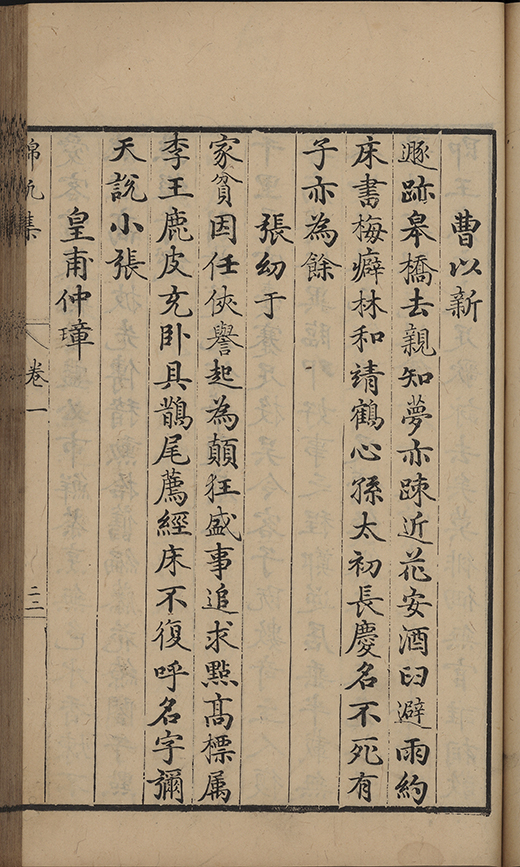 曹以新
遯跡皋橋去親知夢亦踈近花安酒臼避雨約
床書梅癖林和靖鶴心孫太初長慶名不死有
子亦為餘
張幼于
家貧因任俠譽起為顛狂盛事追求點高標属
李王鹿皮充卧具鵲尾薦經床不復呼名字彌
天說小張
皇甫仲璋
錦帆集
卷一
二